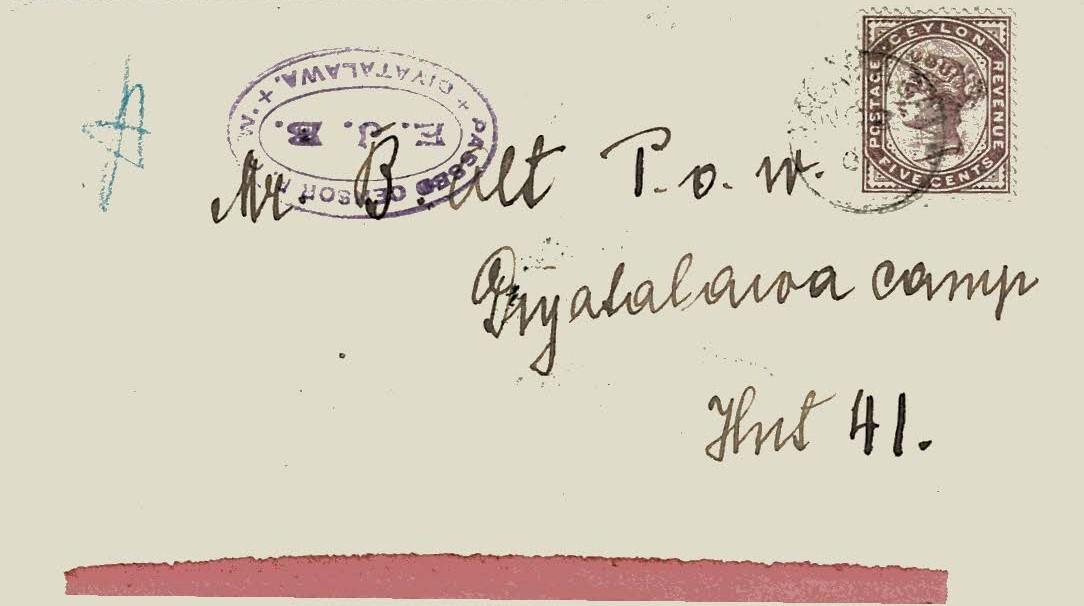 PASSED CENSOR
+ DIYATALAWA. +
F. J. B.
CEYLON
POSTAGE
REVENUE
FIVE CENTS
Mr. B. Alt P. o. w.
Diyatalawa camp
Hut 41.